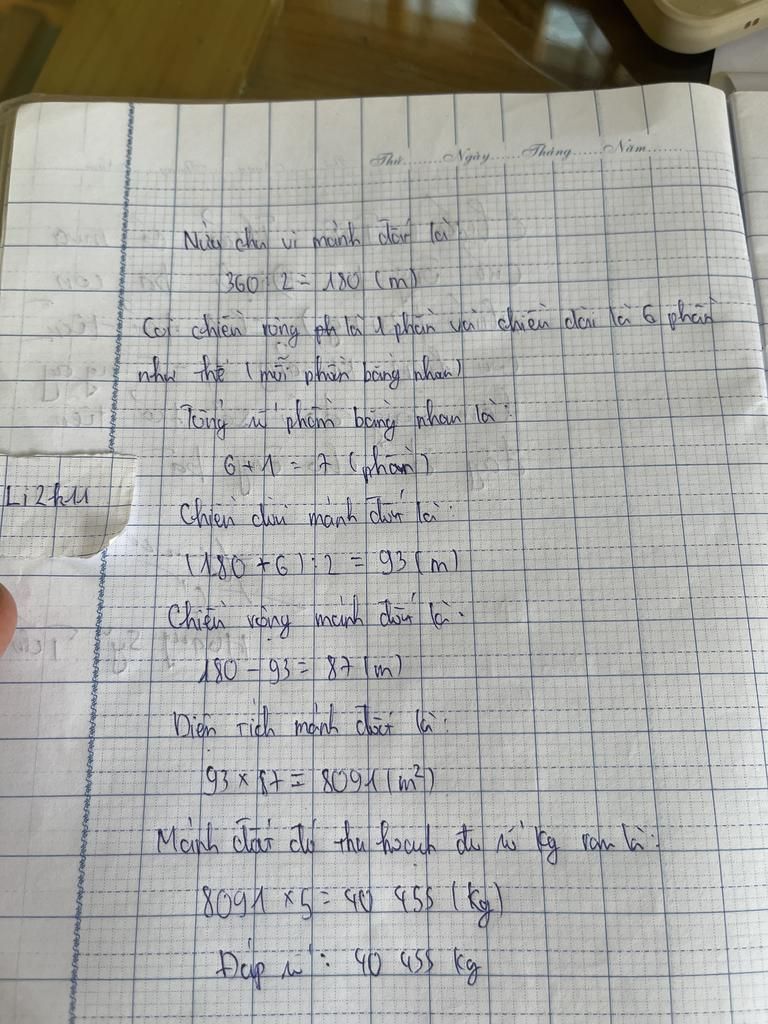 Thứ.......Ngày......Tháng......Năm.......
Nửa chu vi mảnh đất là:
360 : 2 = 180 (m)
Coi chiều rộng là 1 phần và chiều dài là 6 phần
như thế (mỗi phần bằng nhau)
Tổng số phần bằng nhau là:
6 + 1 = 7 (phần)
Chiều dài mảnh đất là:
(180 + 6) : 2 = 93 (m)
Chiều rộng mảnh đất là:
180 - 93 = 87 (m)
Diện tích mảnh đất là:
93 × 87 = 8091 (m²)
Mảnh đất đó thu hoạch số kg rau là:
8091 × 5 = 40 455 (kg)
Đáp số: 40 455 kg